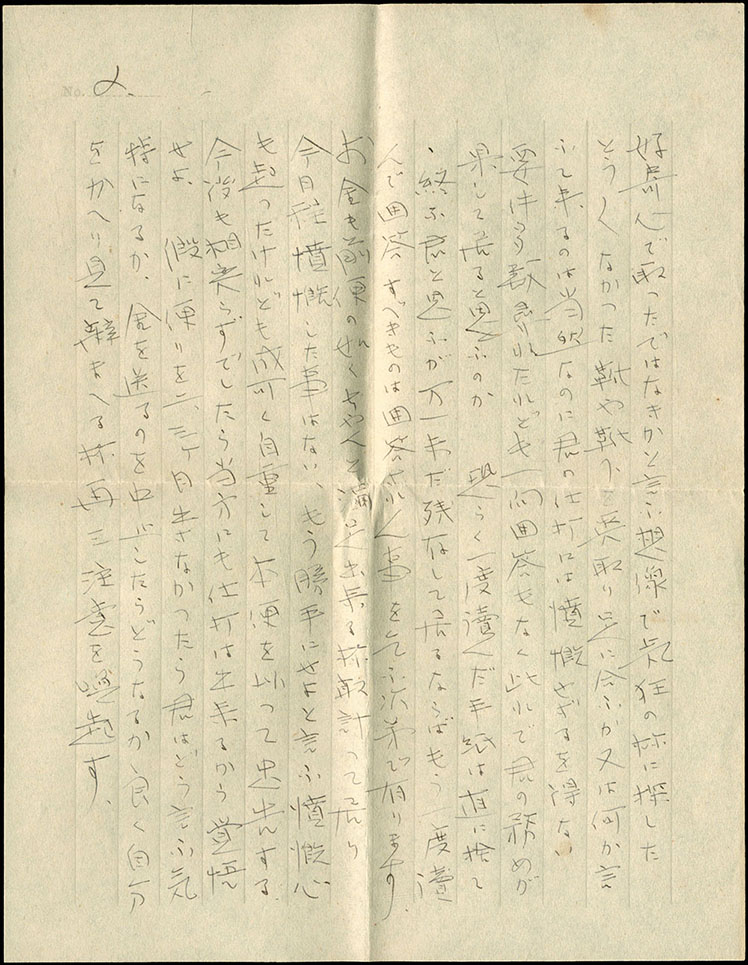 No. 2.
好奇心で取ったではなきかと言ふ想像で気狂の様に探した
とう〱なかった 靴や靴下と受取り足に合ふか又は何か言
ふて来るのは当然なのに君の仕打には憤慨せざるを得ない
要件は与へられたれども一向回答もなく此れで君の務めが
果して居ると思ふのか 恐らく一度読んだ手紙は直に捨て
終ふ君と思ふが万一未だ残存して居るならばもう一度読
んで回答すべきものは回答され度事を乞ふ次第で有ります
お金も前便の如くちやんと満足出来る様取計って居り
今日程憤慨した事はない、もう勝手にせよと言ふ憤慨心
も起ったけれども成可く自重して本便を以って申出んする
今後も相変らずでしたら当方にも仕打は出来るから覚悟
せよ、假に便りを二、三ヶ月出さなかったら君はどう言ふ気
持になるか、金を送るのを中止したらどうなるか良く自分
をかへり見て 様再三注意を喚起す、